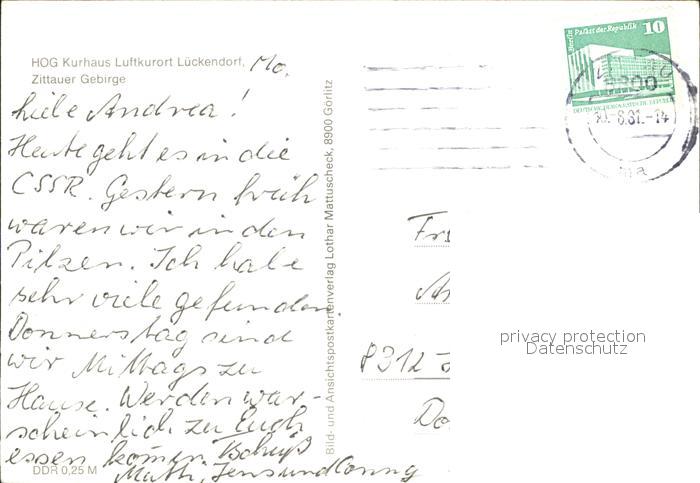 HOG Kurhaus Luftkurort Lückendorf,
Zittauer Gebirge
Mo.
Liebe Andrea!
Heute geht es in die
CSSR. Gestern früh
waren wir in den
Pilzen. Ich habe
sehr viele gefunden.
Donnerstag sind
wir Mittags zu
Hause. Werden war-
scheinlich zu Euch
essen kommen. Tschüß
Mutti, Jens und Conny
DDR 0,25 M
Bild- und Ansichtspostkartenverlag Lothar Mattuscheck, 8900 Görlitz
Berlin Palast der Republik 10
DEUTSCHE DEMOKRATISCHE REPUBLIK
8800
-8.81.-14
8312
privacy protection
Datenschutz